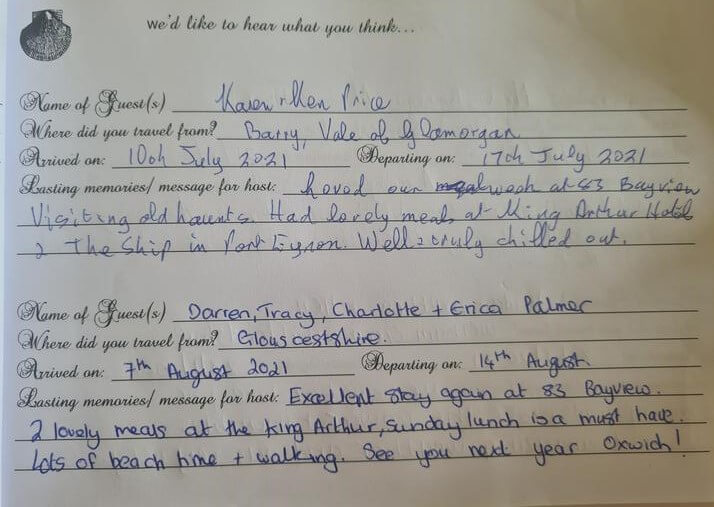 we'd like to hear what you think...
Name of Guest(s) Karen & Ken Price
Where did you travel from? Barry, Vale of Glamorgan
Arrived on: 10th July 2021 Departing on: 17th July 2021
Lasting memories/ message for host: Loved our week at 83 Bayview
Visiting old haunts. Had lovely meals at King Arthur Hotel
& The Ship in Port Eynon. Well & truly chilled out.
Name of Guest(s) Darren, Tracy, Charlotte + Erica Palmer
Where did you travel from? Glouscestshire.
Arrived on: 7th August 2021 Departing on: 14th August.
Lasting memories/ message for host: Excellent stay again at 83 Bayview.
2 lovely meals at the King Arthur, Sunday lunch is a must have.
Lots of beach time + walking. See you next year Oxwich!